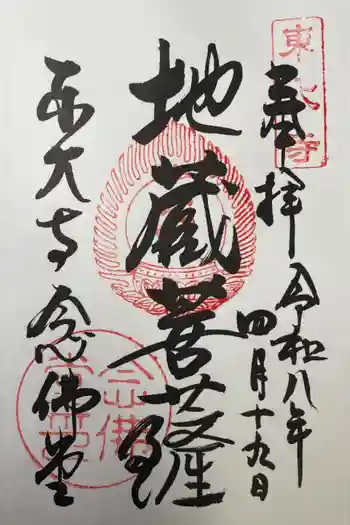 東大寺
奉拝
令和八年
四月十九日
地蔵菩薩
東大寺
念佛堂
念佛堂